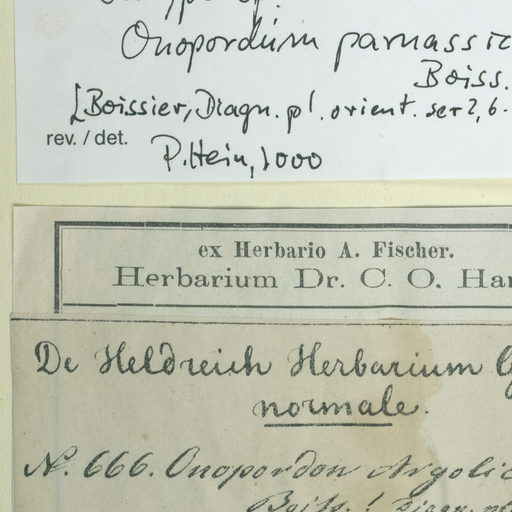 Onopordum parnassic
Boiss.
[Boissier, Diagn. pl. orient. ser 2, 6.
rev. / det. P. Hein, 2000
ex Herbario A. Fischer.
Herbarium Dr. C. O. Har
De Heldreich Herbarium G
normale.
N. 666. Onopordon Argolic
Boiss. ! Diagn. pl